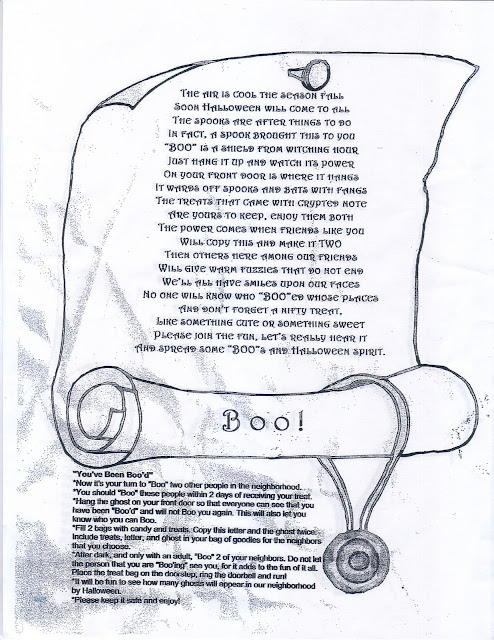 The air is cool the season fall
Soon Halloween will come to all
The spooks are after things to do
In fact, a spook brought this to you
"BOO" is a shield from witching hour
Just hang it up and watch its power
On your front door is where it hangs
It wards off spooks and bats with fangs
The treats that came with crypted note
Are yours to keep, enjoy them both
The power comes when friends like you
Will copy this and make it TWO
Then others here among our friends
Will give warm fuzzies that do not end
We'll all have smiles upon our faces
No one will know who "BOO"ed whose places
And don't forget a nifty treat,
Like something cute or something sweet
Please join the fun, let's really hear it
And spread some "BOO"s and Halloween spirit.
Boo!
"You've Been Boo'd"
*Now it's your turn to "Boo" two other people in the neighborhood.
*You should "Boo" these people within 2 days of receiving your treat.
*Hang the ghost on your front door so that everyone can see that you
have been "Boo'd" and will not Boo you again. This will also let you
know who you can Boo.
*Fill 2 bags with candy and treats. Copy this letter and the ghost twice.
Include treats, letter, and ghost in your bag of goodies for the neighbors
that you choose.
*After dark, and only with an adult, "Boo" 2 of your neighbors. Do not let
the person that you are "Boo'ing" see you, for it adds to the fun of it all.
Place the treat bag on the doorstep, ring the doorbell and run!
*It will be fun to see how many ghosts will appear in our neighborhood
by Halloween.
*Please keep it safe and enjoy!